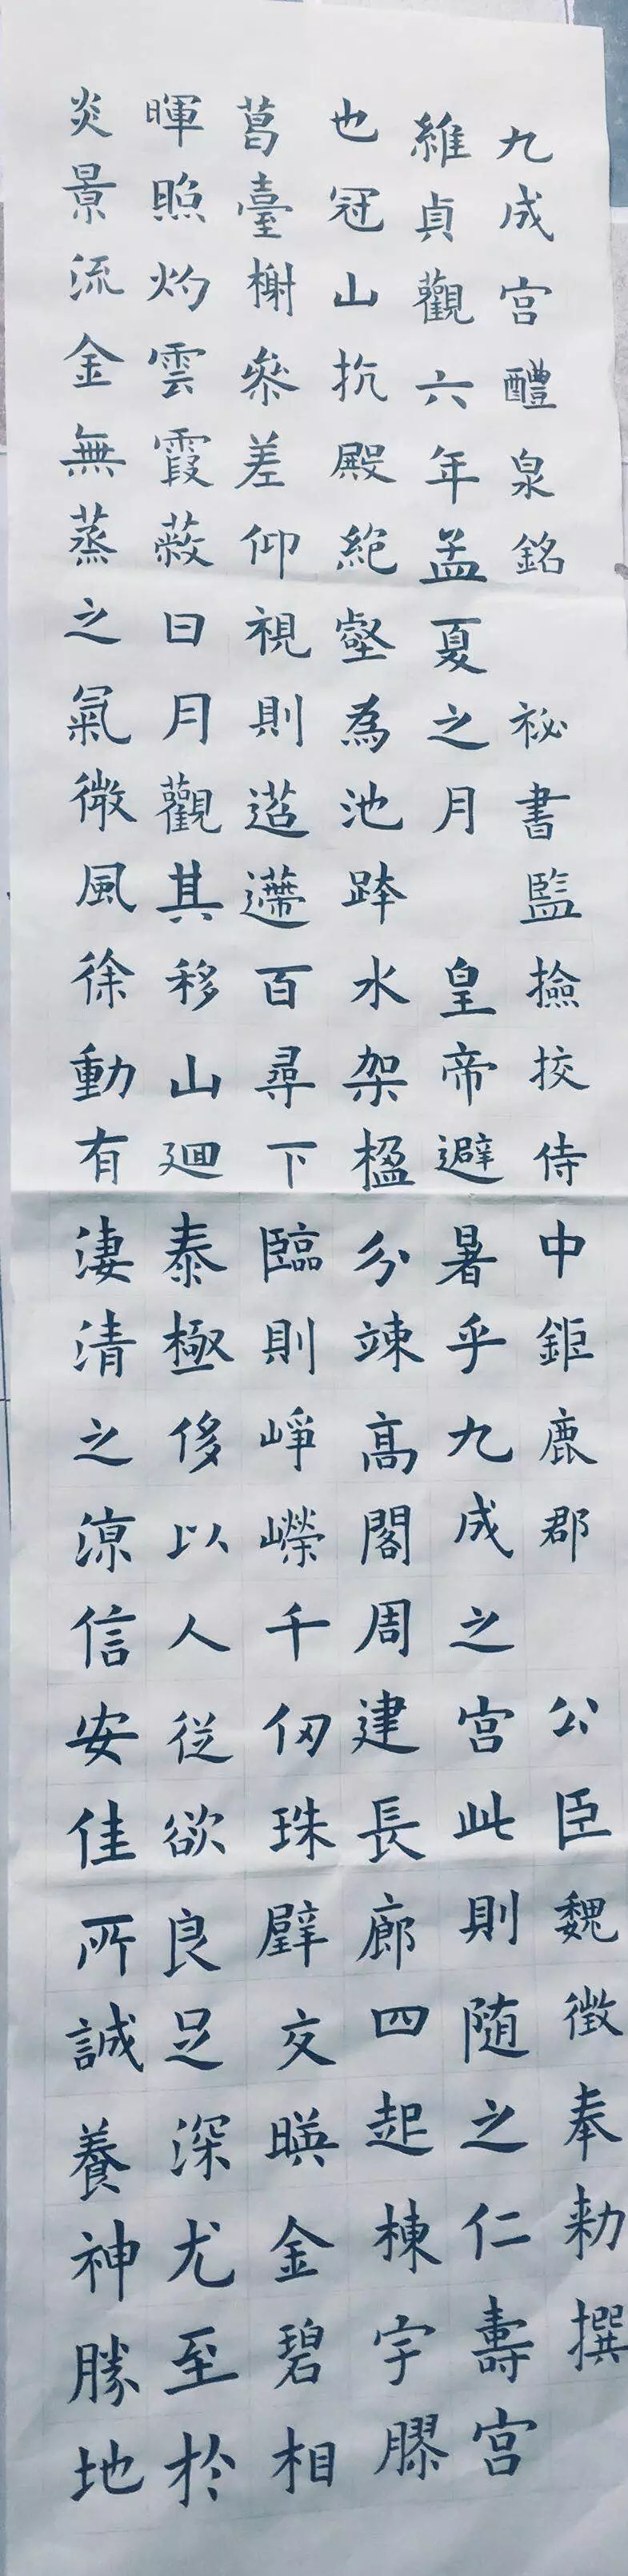 九成宮醴泉銘 祕書監撿挍侍中鉅鹿郡 公臣魏徵奉勑撰
維貞觀六年孟夏之月 皇帝避暑乎九成之宮此則随之仁壽宮
也冠山抗殿絶壑為池跨水架楹分竦高閣周建長廊四起棟宇膠
葛臺榭叅差仰視則迢遰百尋下臨則崢嶸千仞珠壁交暎金碧相
暉照灼雲霞蔽日月觀其移山迴泰極侈以人從欲良足深尤至於
炎景流金無蒸之氣微風徐動有淒清之涼信安佳所誠養神勝地